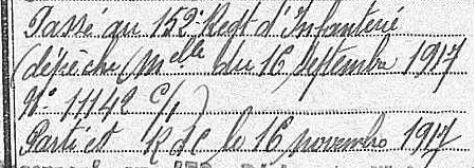 Passé au 152e Regt d'Infanterie
(dépêche Mlle du 16 Septembre 1917
No 11142 C/1)
Parti et le 16 novembre 1917